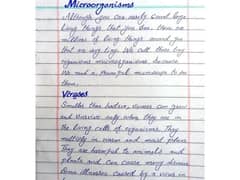 Microorganisms
Although you can easily count large
living things that you see, there are
millions of living things around you
that we any big. We call these tiny
organisms microorganisms because
We need a powerful microscope to see
them.
Viruses
Smaller than bacteria, viruses can grow
and survive only when they are in
the living cells of organisms. They
multiply in warm and moist places
They are harmful to animals and
plants and can cause many diseases
Some illnesses caused by a virus in